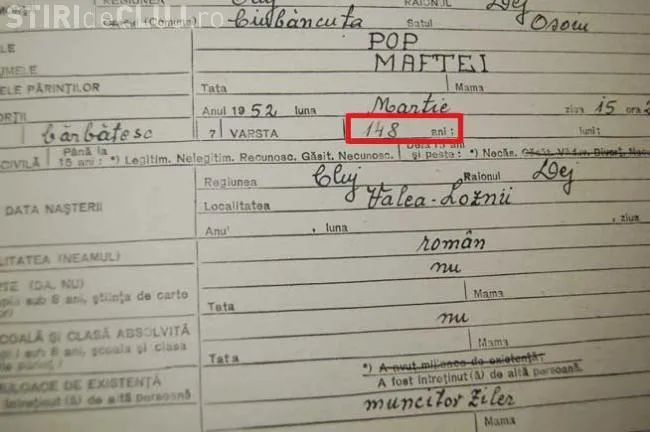 STIRIdeCLUJ.ro
REGIUNEA Cluj RAIONUL Dej
(Comuna) Ciubăncuța Satul Osoiu
POP
MAFTEI
PĂRINȚILOR Tata Mama
Anul 1952 luna Martie ziua 15 ora
bărbătesc 7 VARSTA 148 ani: luni:
CIVILĂ Până la 15 ani: *) Legitim. Nelegitim. Recunosc. Găsit. Necunosc. și peste: *) Necăs.
Regiunea Cluj Raionul Dej
DATA NAȘTERII Localitatea Valea-Loznii
Anul , luna , ziua
(NEAMUL) român
(DA, NU) nu
sub 8 ani, știința de carte Tata Mama
ȘI CLASĂ ABSOLVITĂ nu
sub 8 ani, școala și clasa Tata Mama
*) A avut mijloace de existență:
DE EXISTENȚĂ A fost întreținut(ă) de altă persoană.
întreținut(ă) de altă persoană muncitor Ziler
Tata Mama